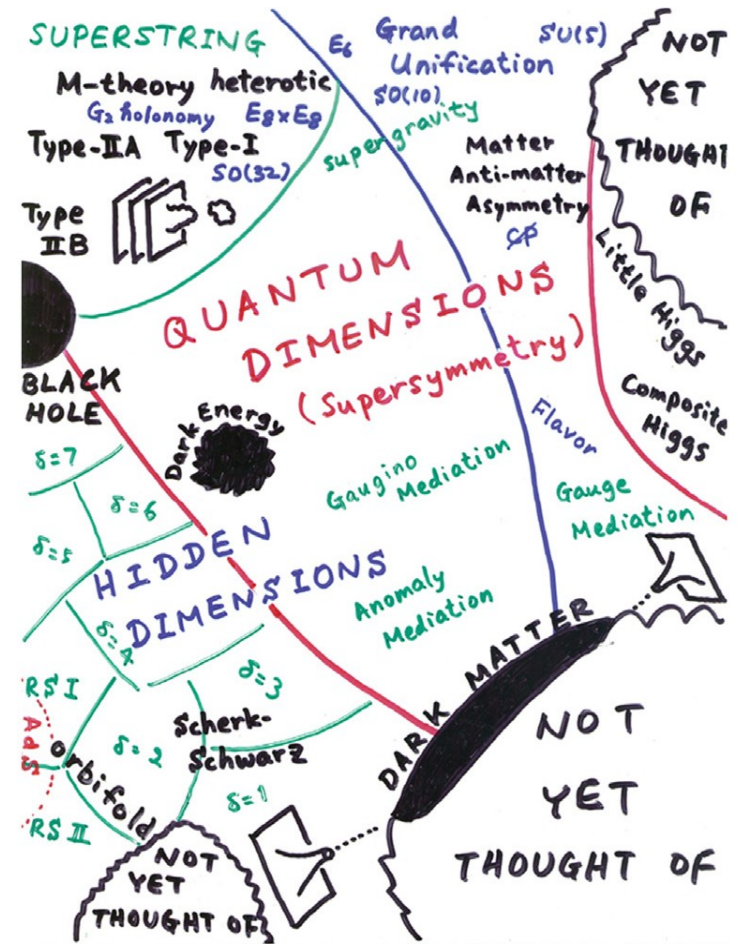 SUPERSTRING
M-theory heterotic
G2 holonomy E8xE8
Type-IIA Type-I
SO(32)
Type
IIB
E6
Grand
Unification
SU(5)
SO(10)
supergravity
Matter
Anti-matter
Asymmetry
CP
NOT
YET
THOUGHT
OF
Little Higgs
Composite
Higgs
QUANTUM
DIMENSIONS
(Supersymmetry)
BLACK
HOLE
Dark Energy
Flavor
Gaugino
Mediation
Gauge
Mediation
Anomaly
Mediation
δ=7
δ=6
δ=5
HIDDEN
DIMENSIONS
δ=4
δ=3
RS I
AdS
RS II
orbifold
δ=2
Scherk-
Schwarz
δ=1
DARK MATTER
NOT
YET
THOUGHT OF
NOT
YET
THOUGHT OF